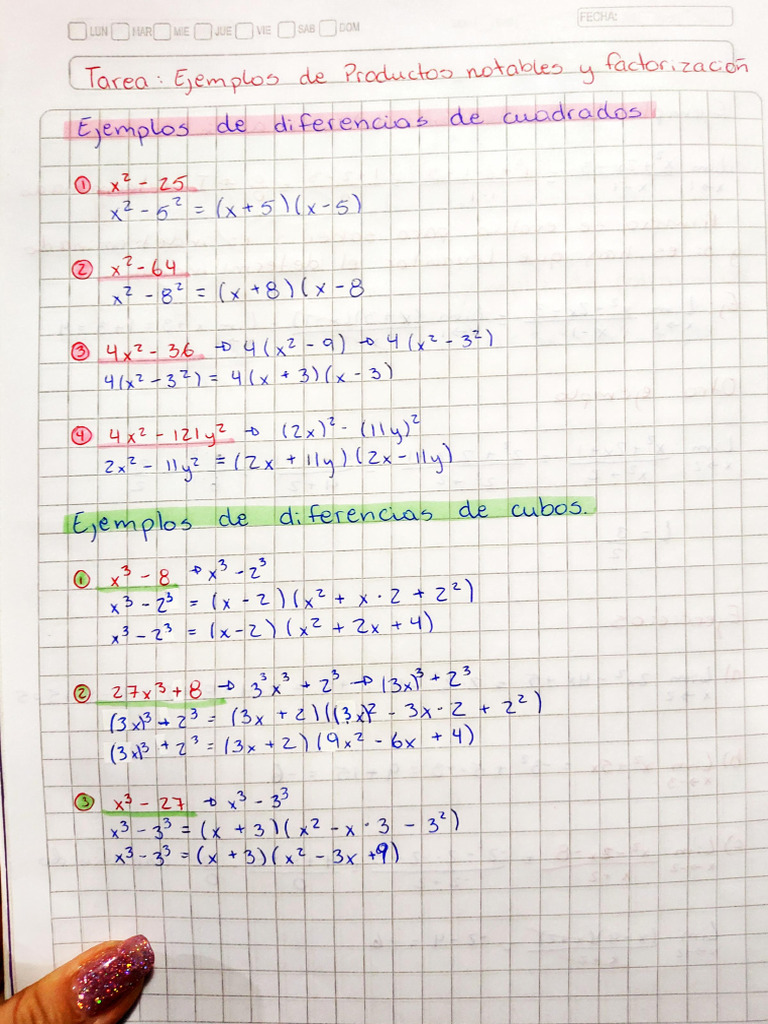 LUN MAR MIE JUE VIE SAB DOM
FECHA:
Tarea: Ejemplos de Productos notables y factorización
Ejemplos de diferencias de cuadrados
① x² - 25
x² - 5² = (x + 5)(x - 5)
② x² - 64
x² - 8² = (x + 8)(x - 8
③ 4x² - 36 → 4(x² - 9) → 4(x² - 3²)
4(x² - 3²) = 4(x + 3)(x - 3)
④ 4x² - 121y² → (2x)² - (11y)²
2x² - 11y² = (2x + 11y)(2x - 11y)
Ejemplos de diferencias de cubos.
① x³ - 8 → x³ - 2³
x³ - 2³ = (x - 2)(x² + x · 2 + 2²)
x³ - 2³ = (x - 2)(x² + 2x + 4)
② 27x³ + 8 → 3³x³ + 2³ → (3x)³ + 2³
(3x)³ + 2³ = (3x + 2)((3x)² - 3x · 2 + 2²)
(3x)³ + 2³ = (3x + 2)(9x² - 6x + 4)
③ x³ - 27 → x³ - 3³
x³ - 3³ = (x + 3)(x² - x · 3 - 3²)
x³ - 3³ = (x + 3)(x² - 3x + 9)